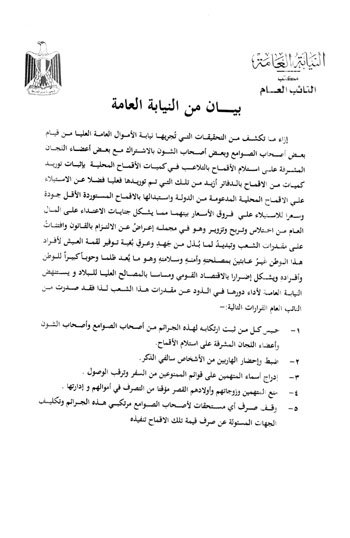 النيابة العامة
مكتب
النائب العام
بيـــان من النيابة العامة
إزاء ما تكشف من التحقيقات التي تُجريها نيابة الأموال العامة العليا من قيام
بعض أصحاب الصوامع وبعض أصحاب الشون بالاشتراك مع بعض أعضاء اللجان
المشرفة على استلام الأقماح بالتلاعب في كميات الأقماح المحلية بإثبات توريد
كميات من الأقماح بالدفاتر أزيد من تلك التي تم توريدها فعليا فضلا عن الاستيلاء
على الأقماح المحلية المدعومة من الدولة واستبدالها بالأقماح المستوردة الأقل جودة
وسعرا للاستيلاء على فروق الأسعار بينهما مما يشكل جنايات الاعتداء على المال
العام من اختلاس وتربح وتزوير وهو في مجمله إعراضٌ عن الالتزام بالقانون وافتئاتٌ
على مقدرات الشعب وتبديدٌ لما بُذل من جَهدٍ وعرقٍ بُغية توفير لقمة العيش لأفراد
هذا الوطن غيرُ عابئين بمصلحته وأمنه وسلامته وهو ما يُعد ظلما وحوباً كبيراً للوطن
وأفراده ويشكل إضرارا بالاقتصاد القومي ومساسا بالمصالح العليا للبلاد و يستنهض
النيابة العامة لأداء دورها في الذود عن مقدرات هذا الشعب لذا فقد صدرت من
النائب العام القرارات التالية:-
١- حبس كل من ثبت ارتكابه لهذه الجرائم من أصحاب الصوامع وأصحاب الشون
وأعضاء اللجان المشرفة على استلام الأقماح.
٢- ضبط وإحضار الهاربين من الأشخاص سالفي الذكر.
٣- إدراج أسماء المتهمين على قوائم الممنوعين من السفر وترقب الوصول .
٤- منع المتهمين وزوجاتهم وأولادهم القصر مؤقتا من التصرف في أموالهم و إدارتها .
٥- وقف صرف أي مستحقات لأصحاب الصوامع مرتكبي هذه الجرائم وتكليف
الجهات المسئولة عن صرف قيمة تلك الاقماح تنفيذه